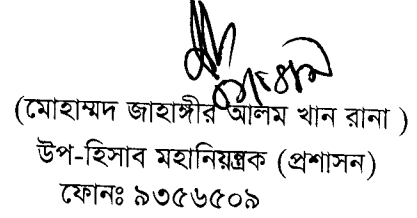 (মোহাম্মদ জাহাঙ্গীর আলম খান রানা )
উপ-হিসাব মহানিয়ন্ত্রক (প্রশাসন)
ফোনঃ ৯৩৫৬৫০৯